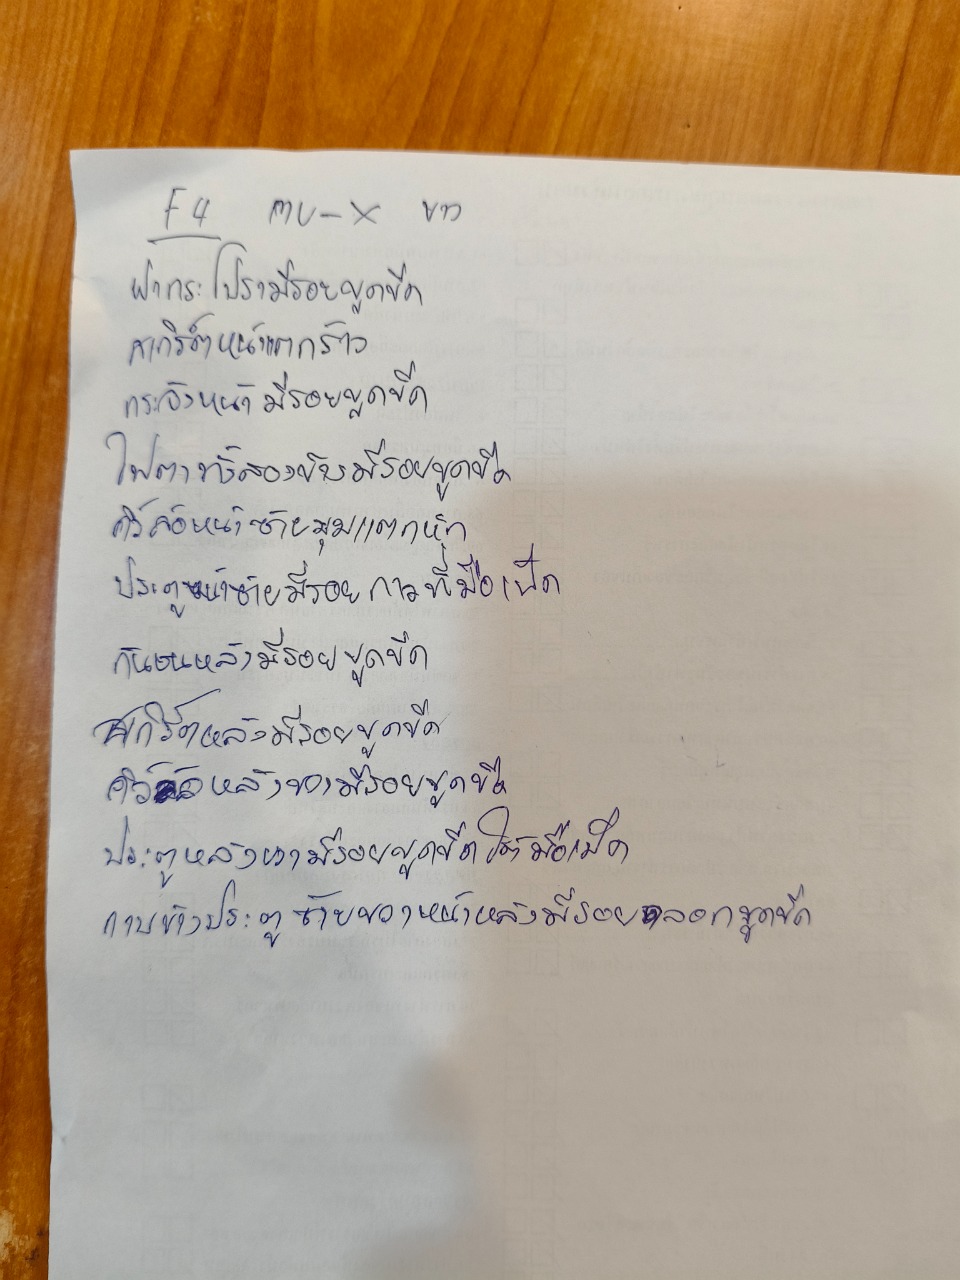 F4 mu-X ขาว
ฝากระโปรงมีรอยขูดขีด
สเกิร์ตหน้าแตกร้าว
กระจังหน้ามีรอยขูดขีด
ไฟตาทั้งสองข้างมีรอยขูดขีด
คิ้วล้อหน้าซ้ายมุมแตกหัก
ประตูหน้าซ้ายมีรอยกาวที่มือเปิด
กันชนหลังมีรอยขูดขีด
สเกิร์ตหลังมีรอยขูดขีด
คิ้วล้อหลังขวามีรอยขูดขีด
ประตูหลังขวามีรอยขูดขีดใต้มือเปิด
กาบข้างประตูซ้ายขวาหน้าหลังมีรอยถลอกขูดขีด